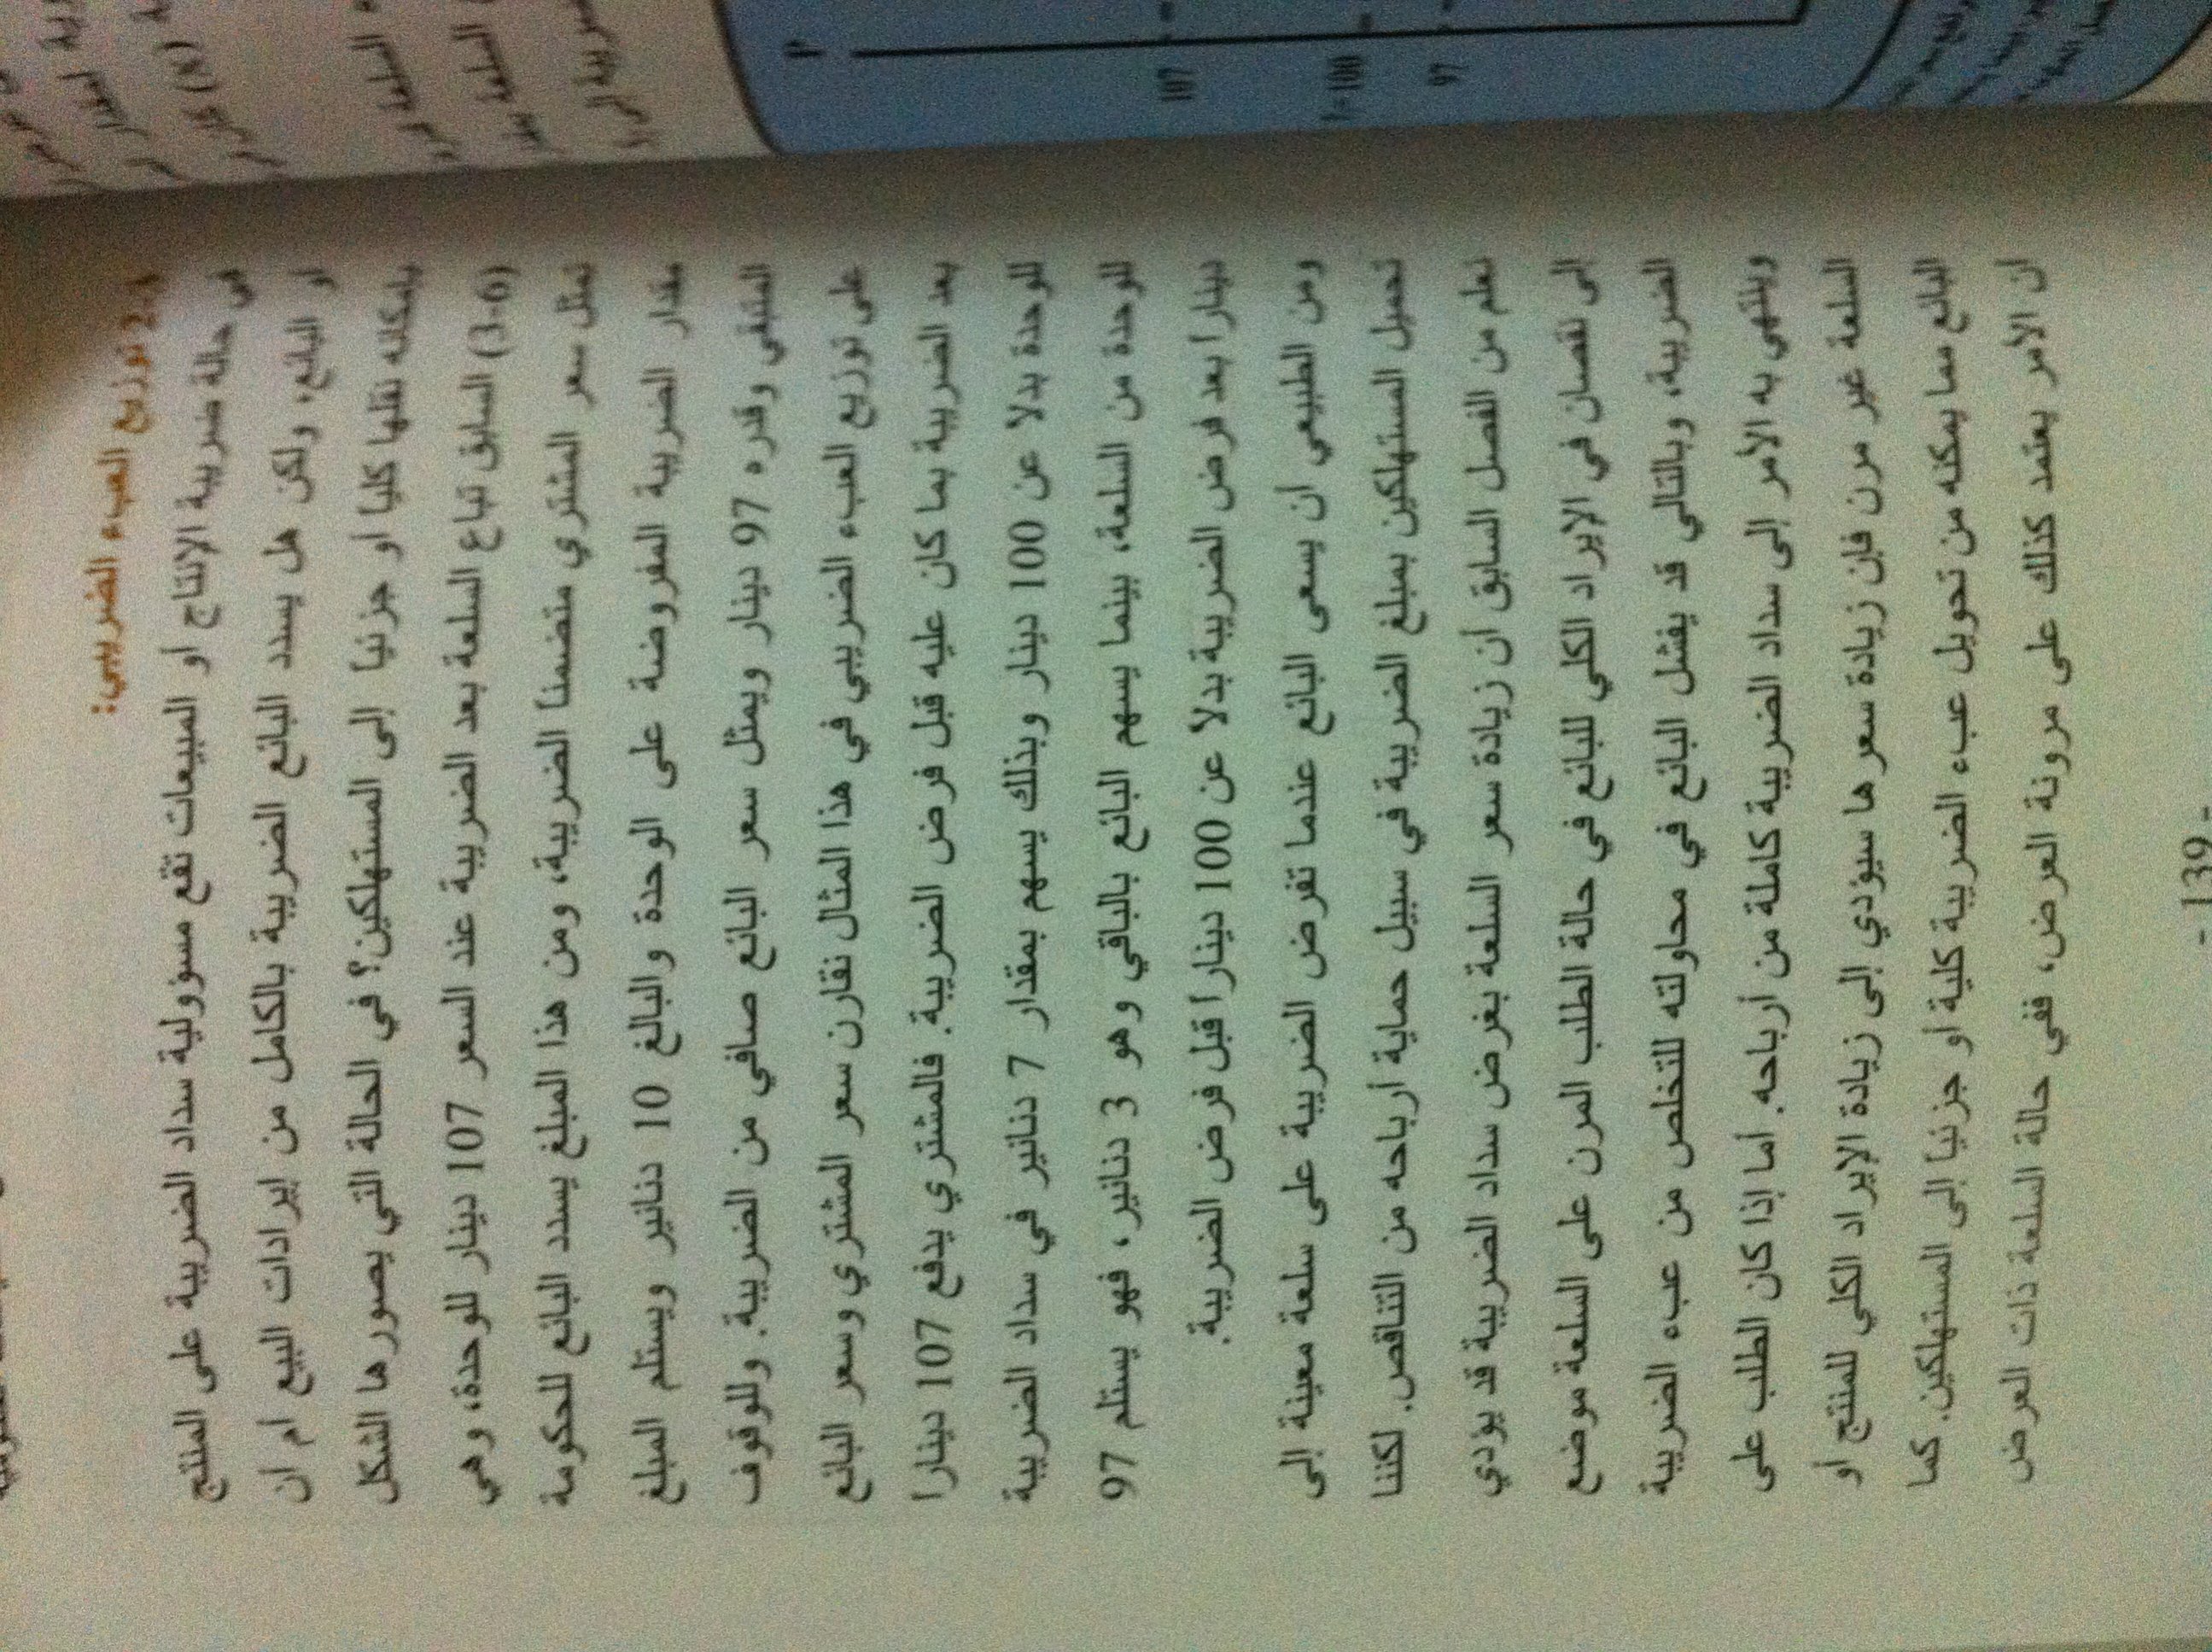 2-1 توزيع العبء الضريبي:
في حالة ضريبة الإنتاج أو المبيعات تقع مسؤولية سداد الضريبة على المنتج
أو البائع، ولكن هل يسدد البائع الضريبة بالكامل من إيرادات البيع أم ان
بإمكانه نقلها كليا أو جزئيا إلى المستهلكين؟ في الحالة التي يصورها الشكل
(3-6) السابق تباع السلعة بعد الضريبة عند السعر 107 دينار للوحدة، وهي
تمثل سعر المشتري متضمناً الضريبة، ومن هذا المبلغ يسدد البائع للحكومة
مقدار الضريبة المفروضة على الوحدة والبالغ 10 دنانير ويستلم المبلغ
المتبقي وقدره 97 دينار ويمثل سعر البائع صافي من الضريبة. وللوقوف
على توزيع العبء الضريبي في هذا المثال نقارن سعر المشتري وسعر البائع
بعد الضريبة بما كان عليه قبل فرض الضريبة. فالمشتري يدفع 107 دينارا
للوحدة بدلا عن 100 دينار وبذلك يسهم بمقدار 7 دنانير في سداد الضريبة
للوحدة من السلعة، بينما يسهم البائع بالباقي وهو 3 دنانير، فهو يستلم 97
دينارا بعد فرض الضريبة بدلا عن 100 دينارا قبل فرض الضريبة.
ومن الطبيعي أن يسعى البائع عندما تفرض الضريبة على سلعة معينة إلى
تحميل المستهلكين بمبلغ الضريبة في سبيل حماية أرباحه من التناقص. لكننا
نعلم من الفصل السابق أن زيادة سعر السلعة بغرض سداد الضريبة قد يؤدي
إلى نقصان في الإيراد الكلي للبائع في حالة الطلب المرن على السلعة موضع
الضريبة، وبالتالي قد يفشل البائع في محاولته للتخلص من عبء الضريبة
وينتهي به الأمر إلى سداد الضريبة كاملة من أرباحه. أما إذا كان الطلب على
السلعة غير مرن فإن زيادة سعرها سيؤدي إلى زيادة الإيراد الكلي للمنتج أو
البائع مما يمكنه من تحويل عبء الضريبة كلية أو جزئياً إلى المستهلكين. كما
ان الأمر يعتمد كذلك على مرونة العرض، ففي حالة السلعة ذات العرض
- 139 -
107
97